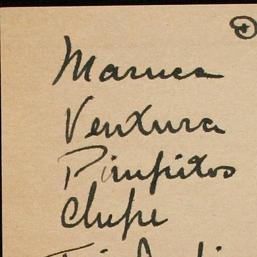 Maruca
Ventura
Pimpitos
Chupe